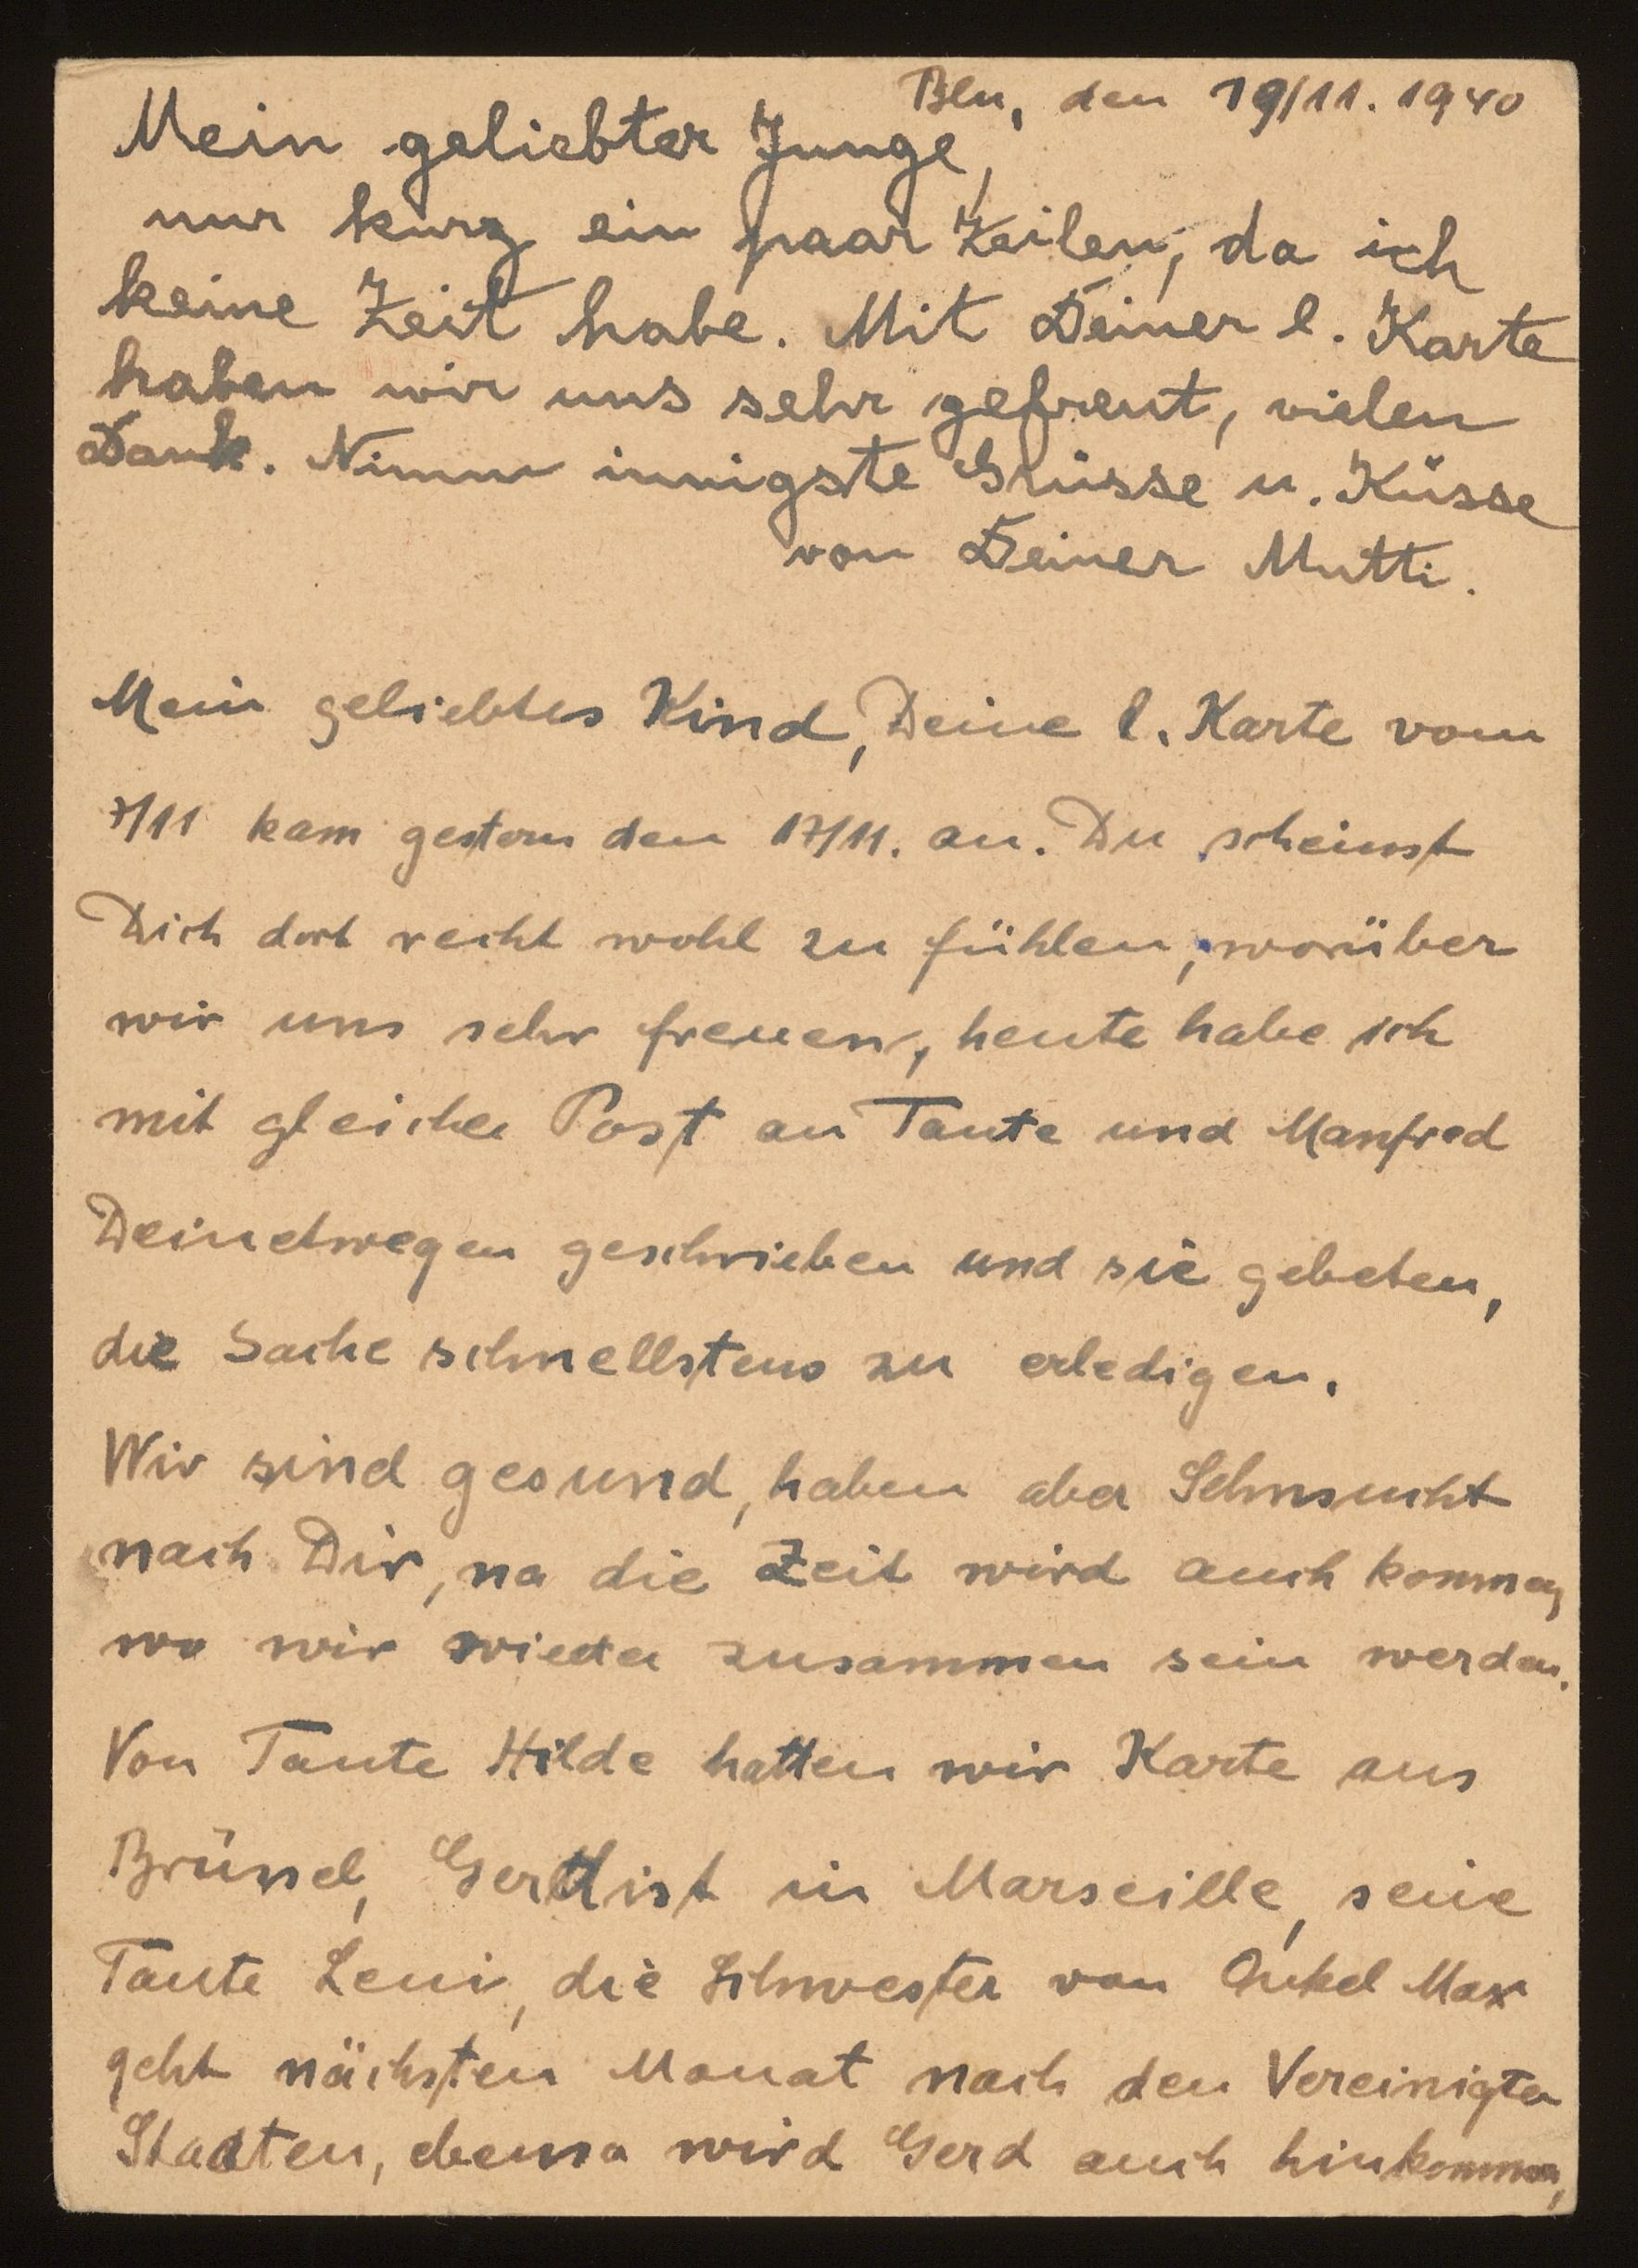 Bln, den 19/11. 1940
Mein geliebter Junge,
nur kurz ein paar Zeilen, da ich
keine Zeit habe. Mit Deiner l. Karte
haben wir uns sehr gefreut, vielen
Dank. Nimm innigste Grüsse u. Küsse
von Deiner Mutti.
Mein geliebtes Kind, Deine l. Karte vom
7/11 kam gestern den 17/11. an. Du scheinst
Dich dort recht wohl zu fühlen, worüber
wir uns sehr freuen, heute habe ich
mit gleicher Post an Tante und Manfred
Deinetwegen geschrieben und sie gebeten,
die Sache schnellstens zu erledigen.
Wir sind gesund, haben aber Sehnsucht
nach Dir, na die Zeit wird auch kommen,
wo wir wieder zusammen sein werden.
Von Tante Hilde hatten wir Karte aus
Brüssel, Gerd ist in Marseille, seine
Tante Leni, die Schwester von Onkel Max
geht nächsten Monat nach den Vereinigten
Staaten, ebenso wird Gerd auch hinkommen,